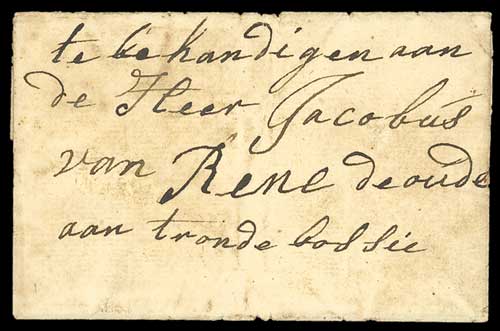 te behandigen aan
de Heer Jacobús
van Rene de oude
aan tronde bossie